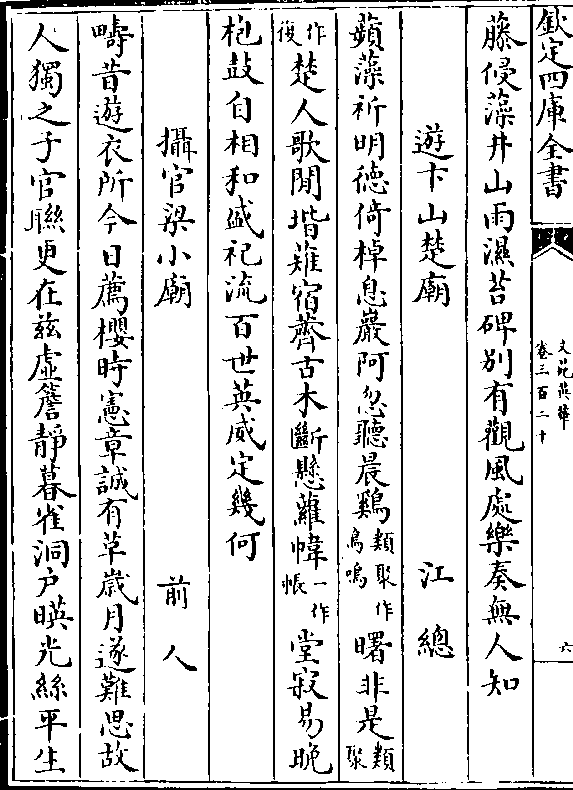 欽定四庫全書
文苑英華
卷三百二十
六
藤侵藻井山雨濕苔碑別有觀風處樂奏無人知
遊卞山楚廟 江總
蘋藻祈明德倚棹息巖阿忽聽晨鷄類聚作鳥鳴曙非是類聚
作復楚人歌閒堦薙宿薺古木斷懸蘿幃一作帳堂寂易晚
枹鼓自相和盛祀流百世英威定幾何
攝官梁小廟 前人
疇昔遊衣所今日薦櫻時憲章誠有草歲月遂難思故
人獨之子官聯更在兹虛簷靜暮雀洞户暎光絲平生